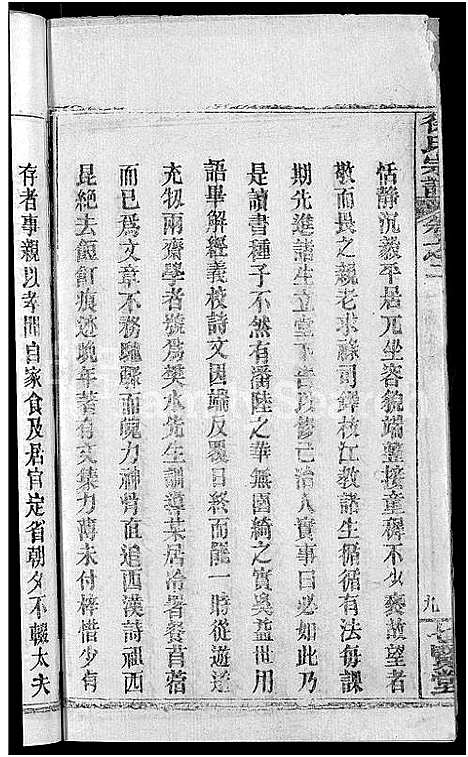 恬靜沉毅平居兀坐容貌端整接童穉不少褻故望者
敬而畏之親老求祿司鐸枝江教諸生循循有法每課
期先進諸生立堂下告以修己治人實事曰必如此乃
是讀書種子不然有潘陸之華無園綺之實奚益世用
語畢解經義校詩文因端反覆日終而罷一時從遊達
充牣兩齋學者號為樊水先生訓導某居冷署餐苜蓿
而已為文章不務馳驟而魄力神骨直追西漢詩祖西
崑絕去餖飣痕迹晚年著有文集力薄未付梓惜少有
存者事親以孝聞自家食及居官定省朝夕不輟太夫
徐氏宗譜
卷之二
九
七賢堂